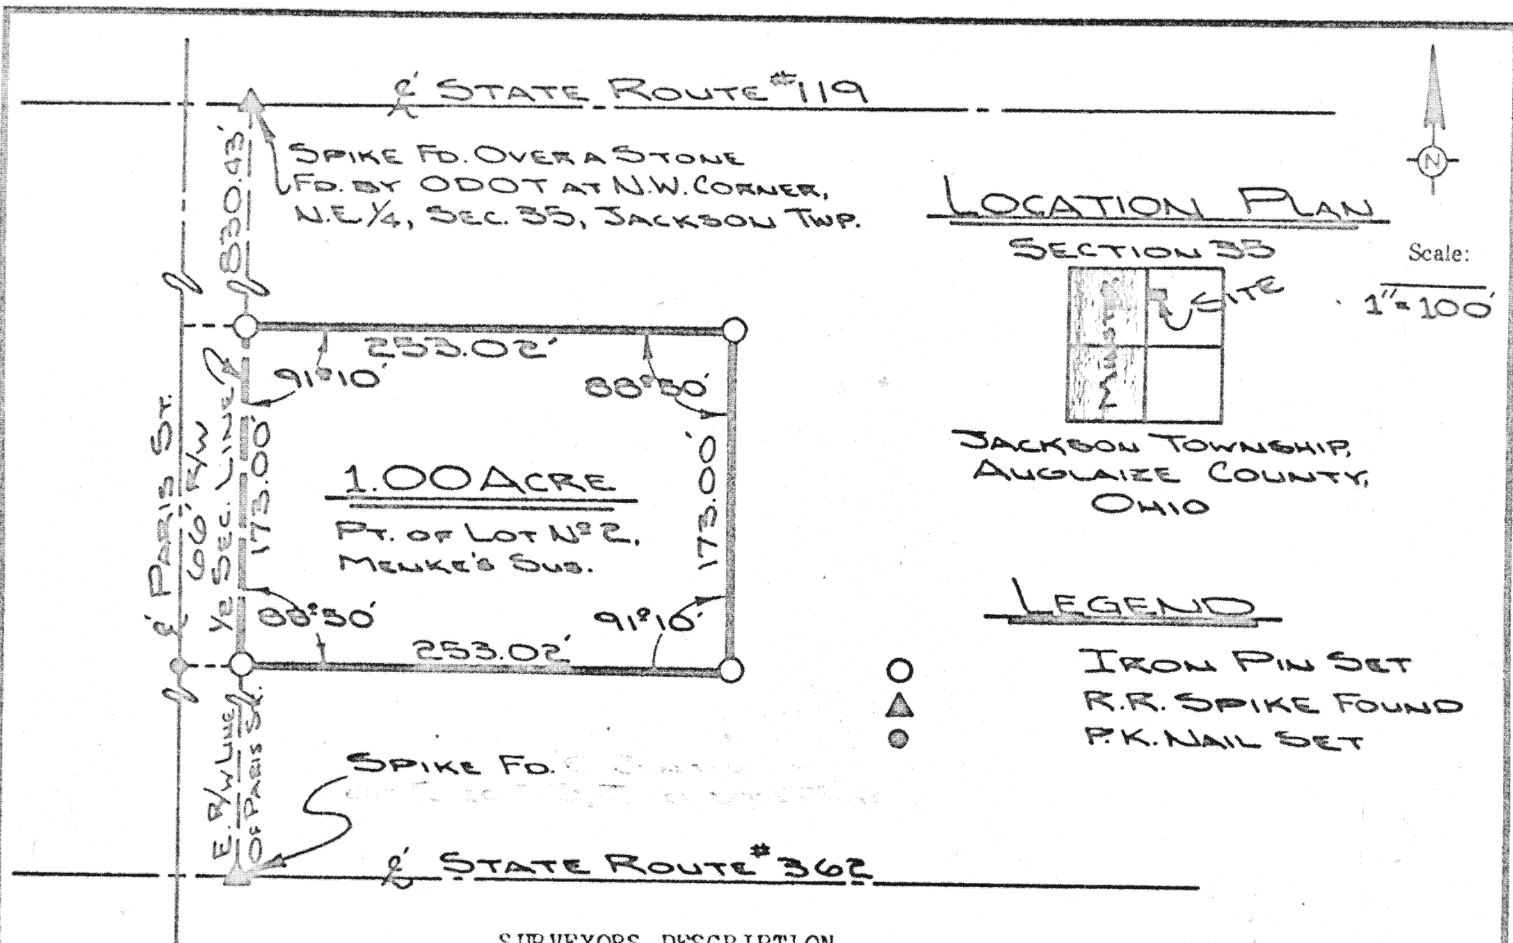 ℄ STATE ROUTE #119
830.43'
SPIKE FD. OVER A STONE
FD. BY ODOT AT N.W. CORNER,
N.E. 1/4, SEC. 35, JACKSON TWP.
N
LOCATION PLAN
SECTION 35
SITE
Munster
JACKSON TOWNSHIP,
AUGLAIZE COUNTY,
OHIO
Scale:
1"=100'
253.02'
91°10'
88°50'
℄ PARIS ST.
66' R/W
1/2 SEC. LINE
173.00'
1.00 ACRE
PT. OF LOT Nº 2,
MENKE'S SUB.
173.00'
88°50'
91°10'
253.02'
LEGEND
IRON PIN SET
R.R. SPIKE FOUND
P.K. NAIL SET
E. R/W LINE
OF PARIS ST.
SPIKE FD.
℄ STATE ROUTE #362
SURVEYORS DESCRIPTION